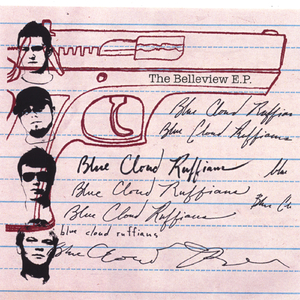 The Belleview E.P.
Blue Cloud Ruffian
Blue Cloud Ruffians
Blue Cloud Ruffians
blu
Blue Cloud Ruffians
Blue Clo
Blue Cloud Ruffians
blue cloud ruffians
Blue Cloud